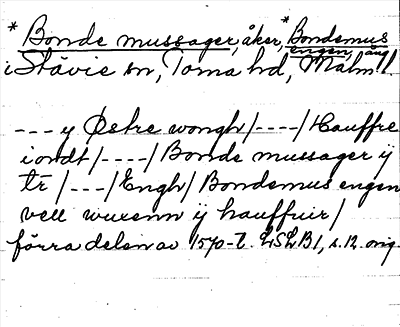 * Bonde mussager, åker, * Bondemus
engen, äng
i Stävie sn, Torna hd, Malm. l.
--- y Østre wongh /----/ Hauffre
iordt /----/ Bonde mussager ij
tr /---/ Engh / Bondemus engen
vell wuerenn ij hauffuir /
förra delen av 1570-t. LSLB1, s. 12. orig.